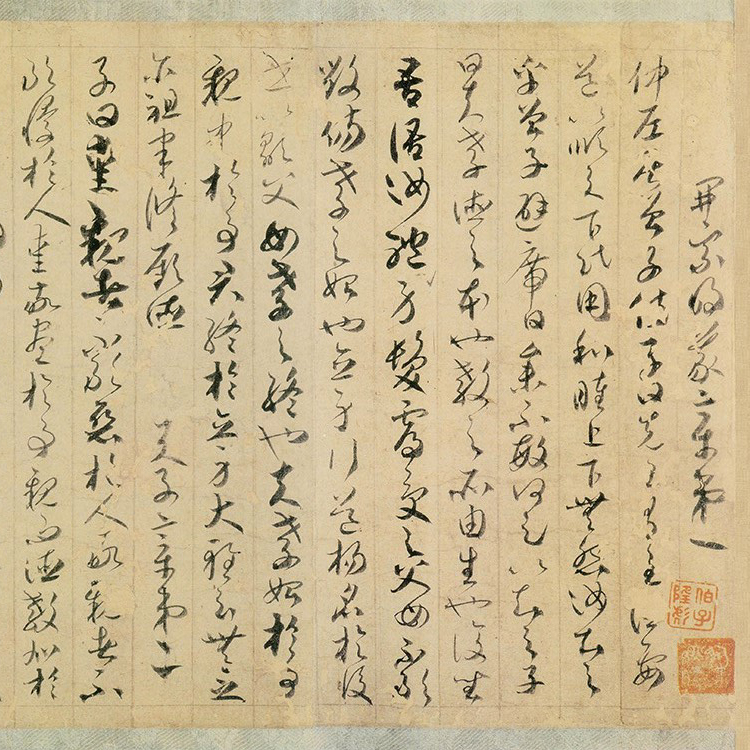 開宗明義章第一
仲尼坐曾子侍子曰先王有至德要
道以順天下民用和睦上下無怨汝知之
乎曾子避席曰參不敏何足以知之子
曰夫孝德之本也教之所由生也復坐
吾語汝體身髮膚受之父母不敢
毀傷孝之始也立身行道揚名於後
世以顯父母孝之終也夫孝始於事
親中於事君終於立身大雅云無念
尔祖聿脩厥德 天子章第二
子曰愛親者不敢惡於人敬親者不
敢慢於人愛敬盡於事親而德教加於